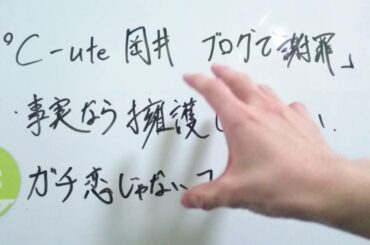 °C-ute 岡井 ブログで謝罪」
・事実なら擁護し い.
ガチ恋じゃない